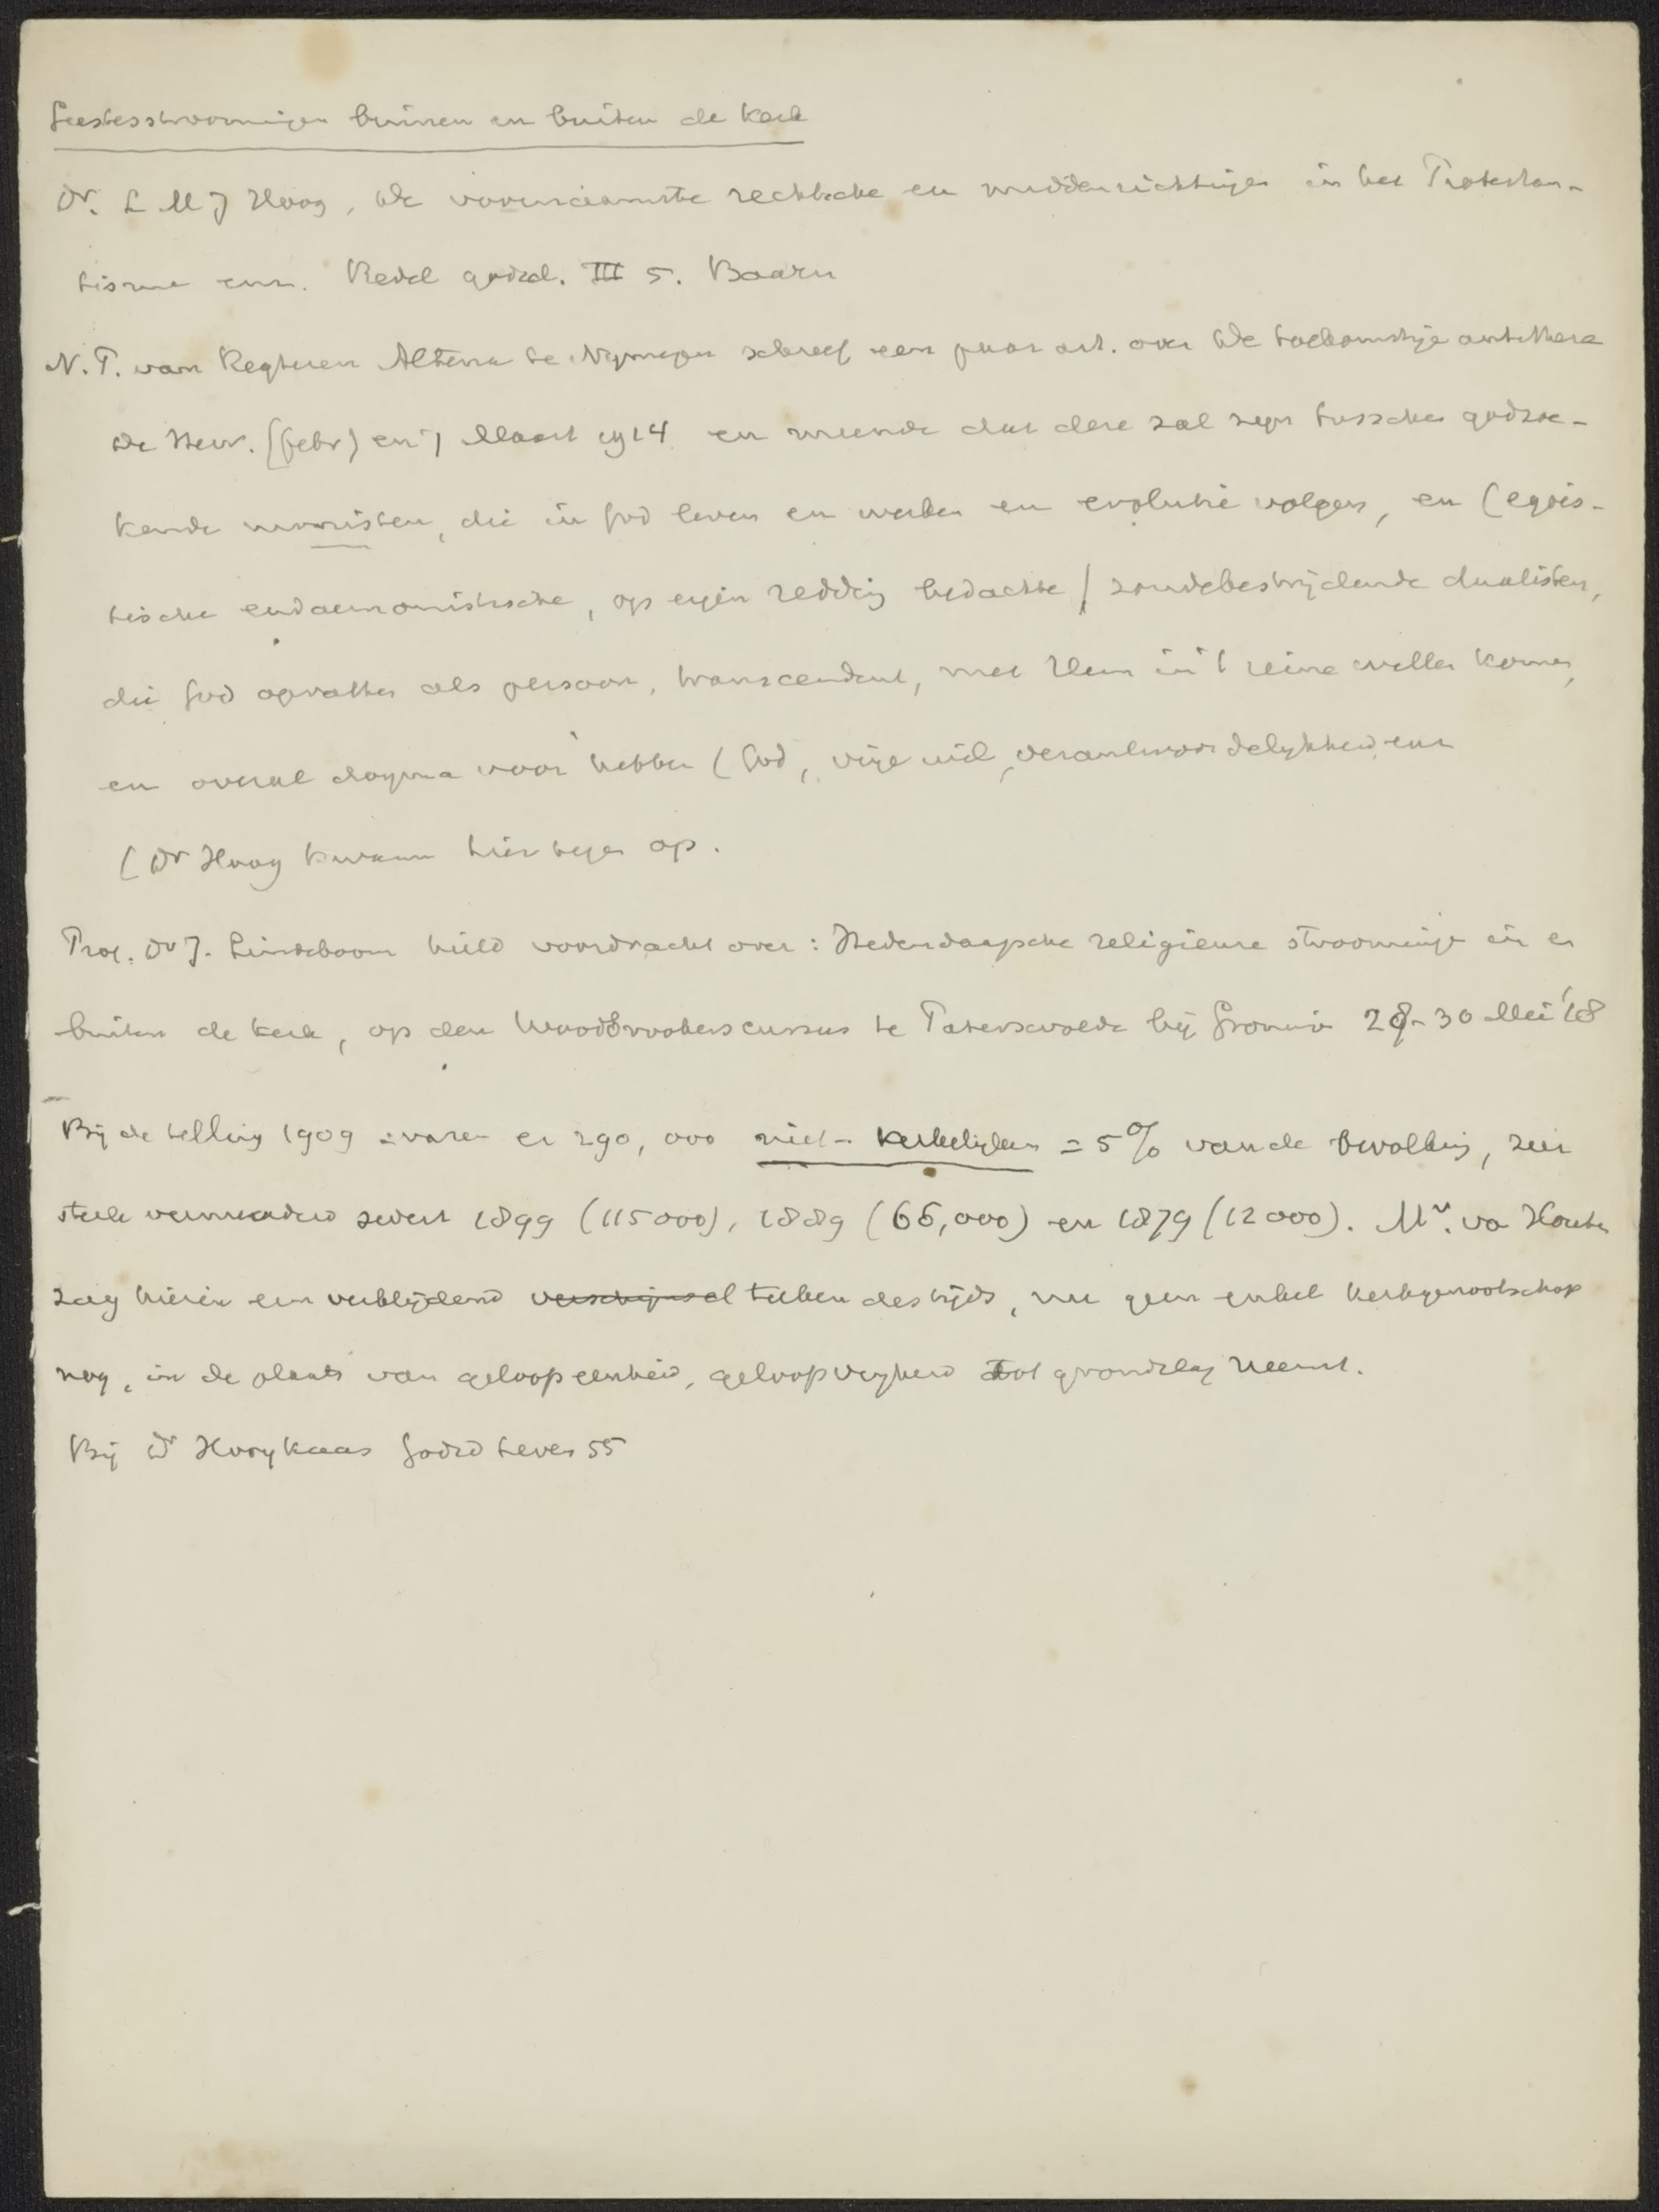 Geestesstroomingen binnen en buiten de kerk
Dr. L M J Hoog, De voornaamste rechtsche en middenrichtingen in het Protestan-
tisme enz. Redel godsd. III 5. Baarn
N. T. van Regteren Altena te Nijmegen schreef een paar art. over De toekomstige antithese
De Herv. (febr) en 7 Maart 1914 en meende dat deze zal zijn tusschen godzoe-
kende monisten, die in God leven en werken en evolutie volgen, en (egois-
tische eudaemonistische, op eigen redding bedachte / zondebestrijdende dualisten,
die God opvatten als persoon, transcendent, met Hem in 't reine willen komen,
en overal dogma voor hebben (God, vrije wil, verantwoordelijkheid enz
(Dr Hoog kwam hier tegen op.
Prof. Dr J. Lindeboom hield voordracht over: Hedendaagsche religieuse stroomingen in en
buiten de kerk, op den Woodbrookerscursus te Paterswolde bij Gronin 28-30 Mei '18
Bij de telling 1909 waren er 290,000 niet-kerkelijken = 5% van de bevolking, zeer
sterk vermeerderd sedert 1899 (115000), 1889 (66,000) en 1879 (12000). Mr. va Houten
zag hierin een verblijdend verschijnsel teeken des tijds, nu geen enkel kerkgenootschap
nog, in de plaats van geloofseenheid, geloofsvrijheid tot grondslag neemt.
Bij Dr Hooykaas Godsd leven 55